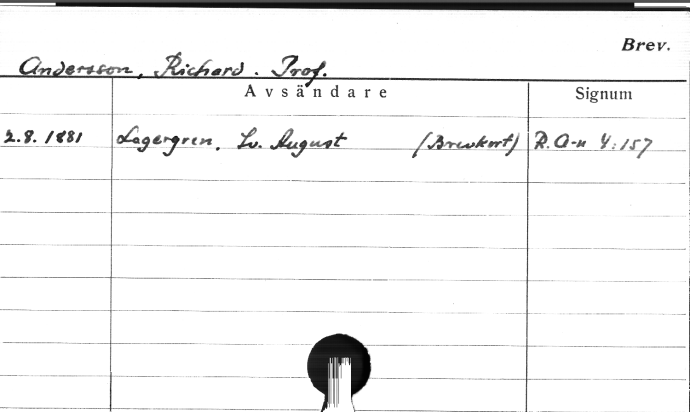 Brev.
Andersson, Richard. Prof.
Avsändare Signum
2.8.1881 Lagergren, Sv. August (Brevkort) R.A-n 4:157